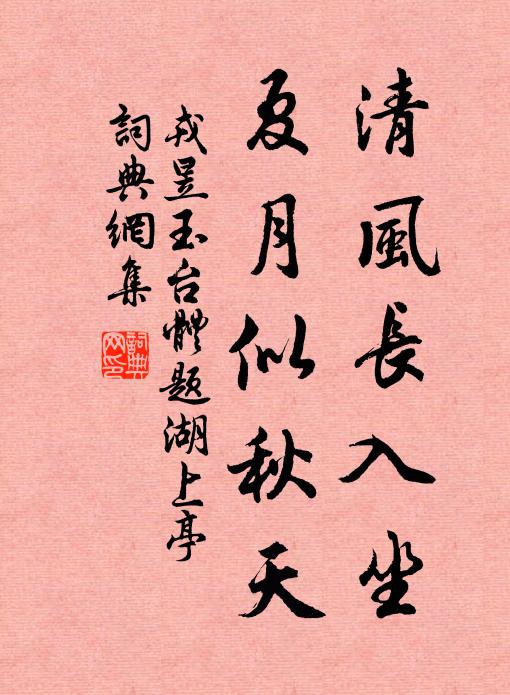 清風長入坐
夏月似秋天
戎昱玉台體題湖上亭
詞典網集
詞典網印